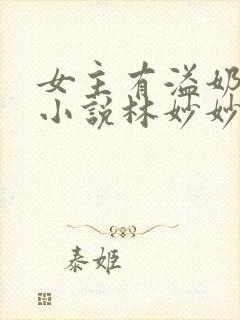 女主有溢奶
小说林妙妙
泰姬